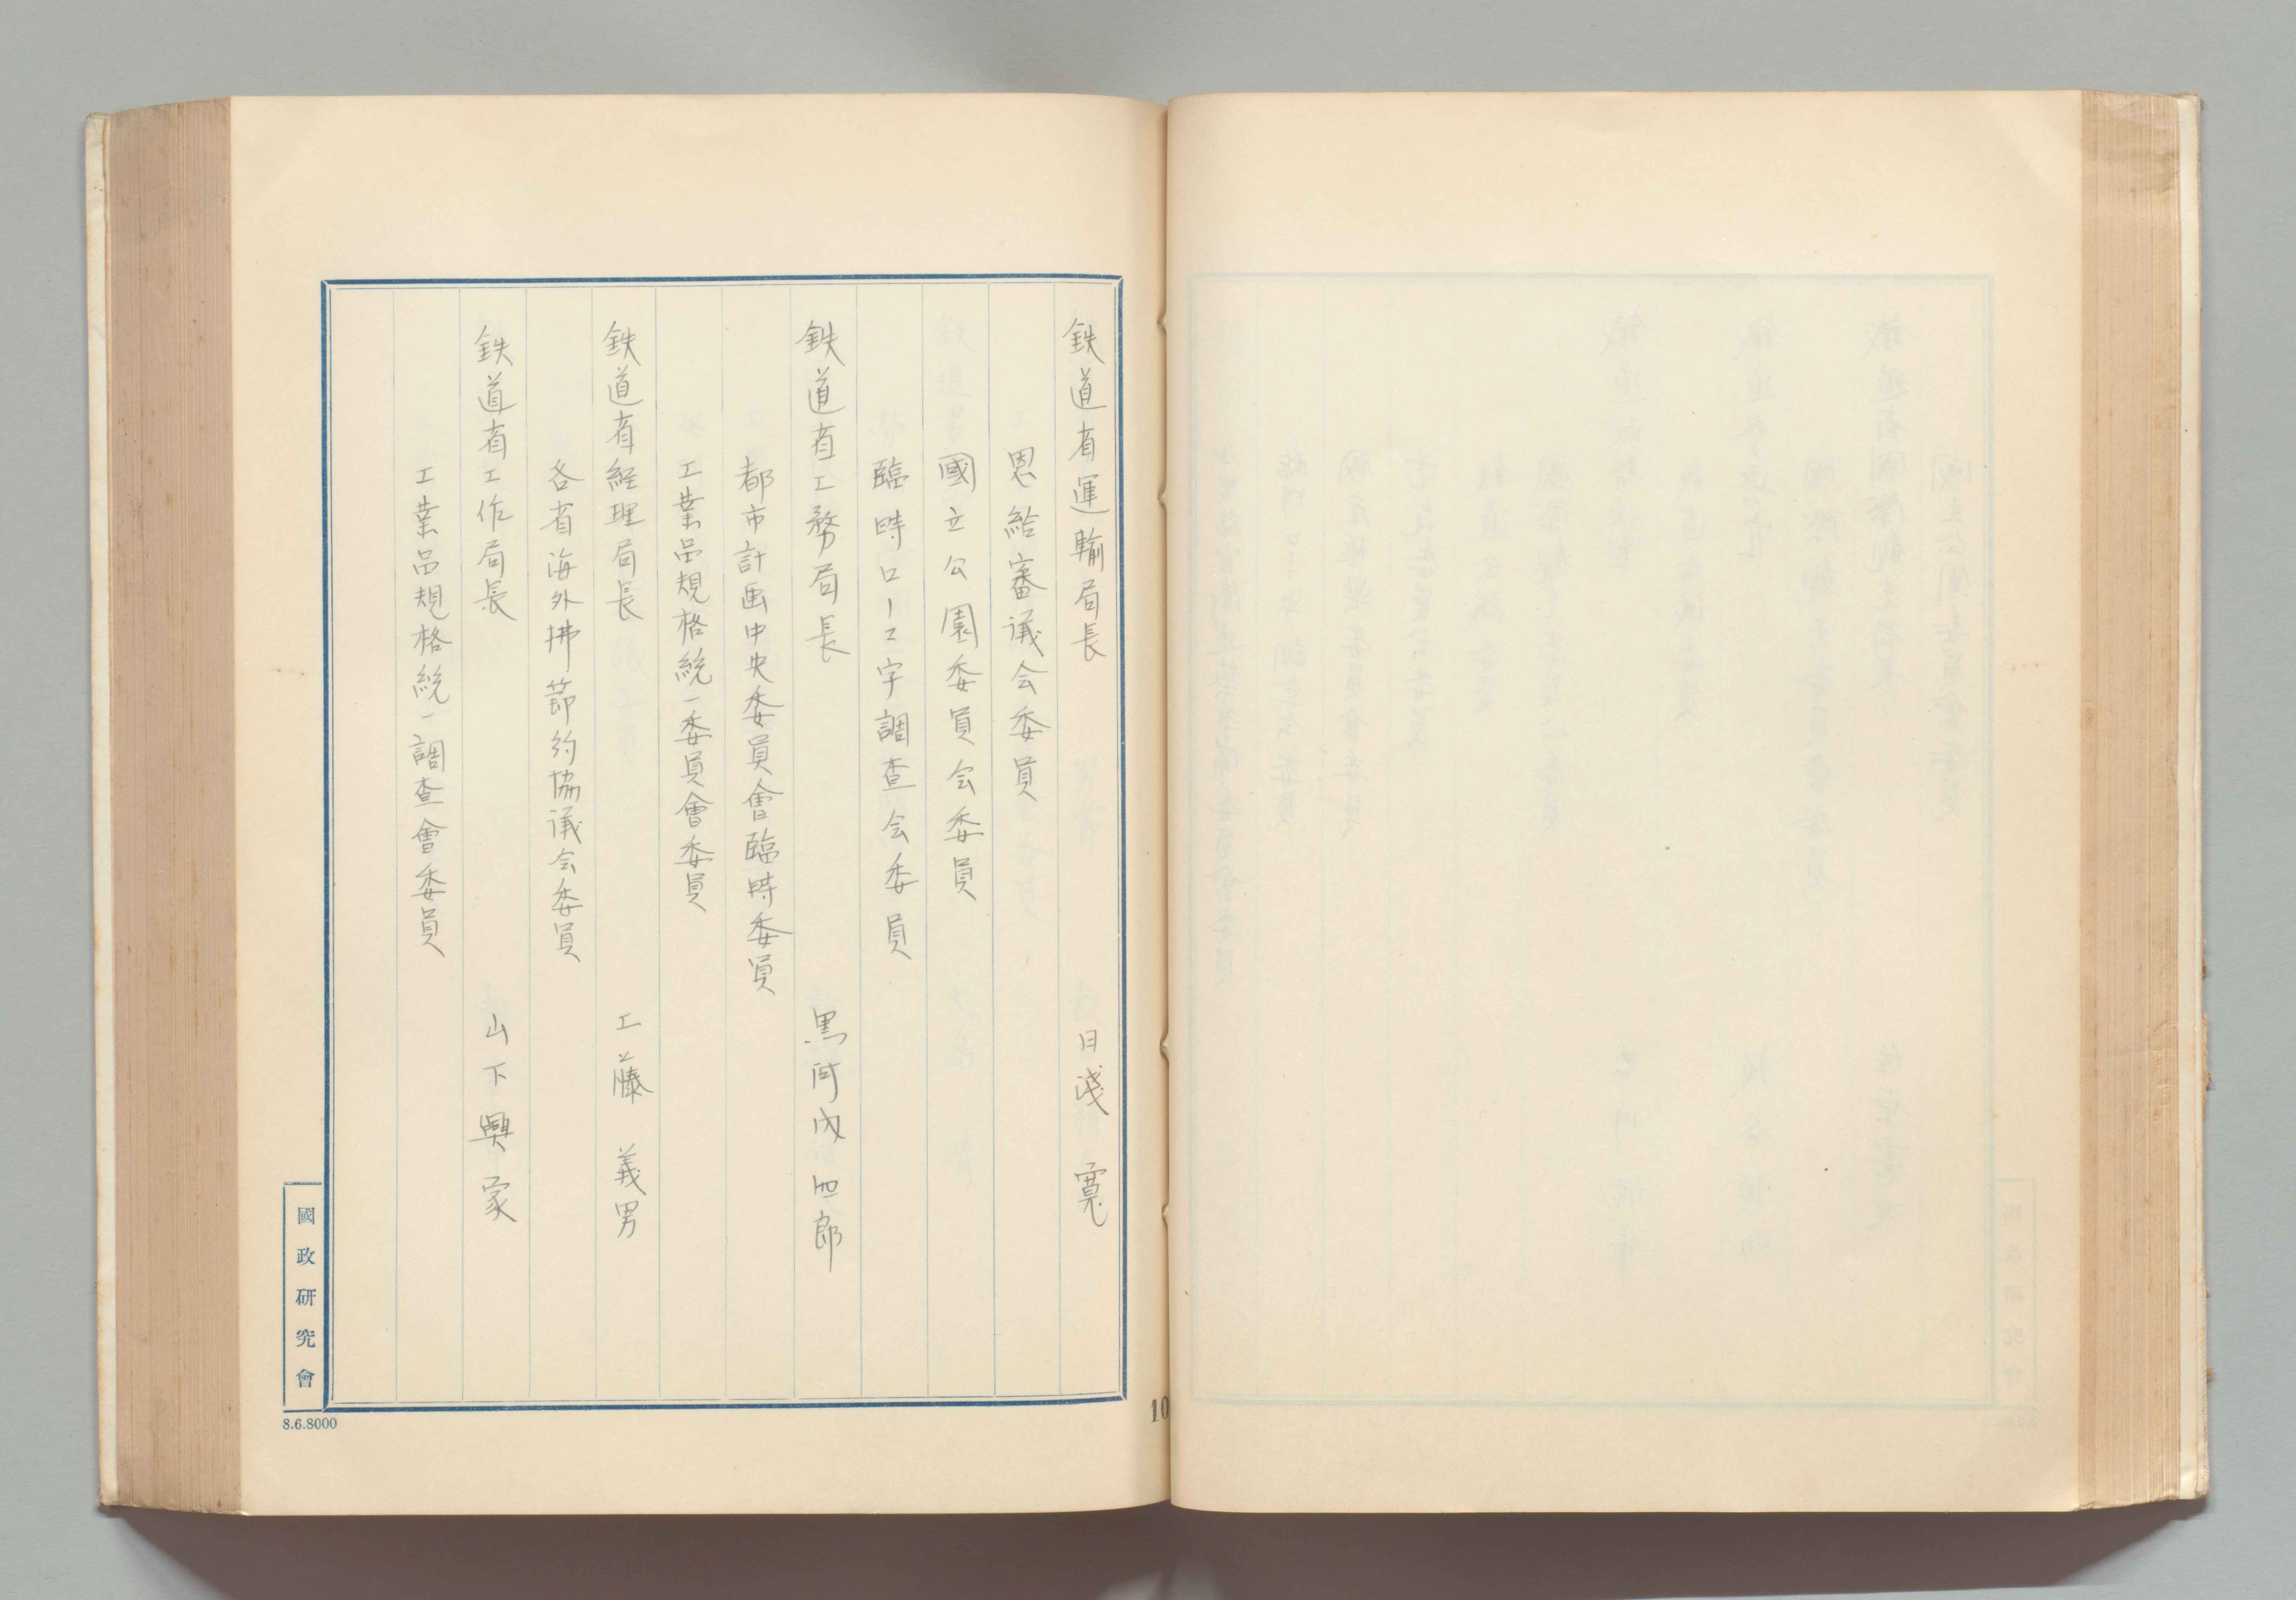 鉄道省運輸局長 日淺 寛
恩給審議会委員
國立公園委員会委員
臨時ローマ字調査会委員
鉄道省工務局長 黒河内四郎
都市計画中央委員會臨時委員
工業品規格統一委員會委員
鉄道省経理局長 工藤 義男
各省海外拂節約協議会委員
鉄道省工作局長 山下興家
工業品規格統一調査會委員
國政研究會
8.6.8000
10